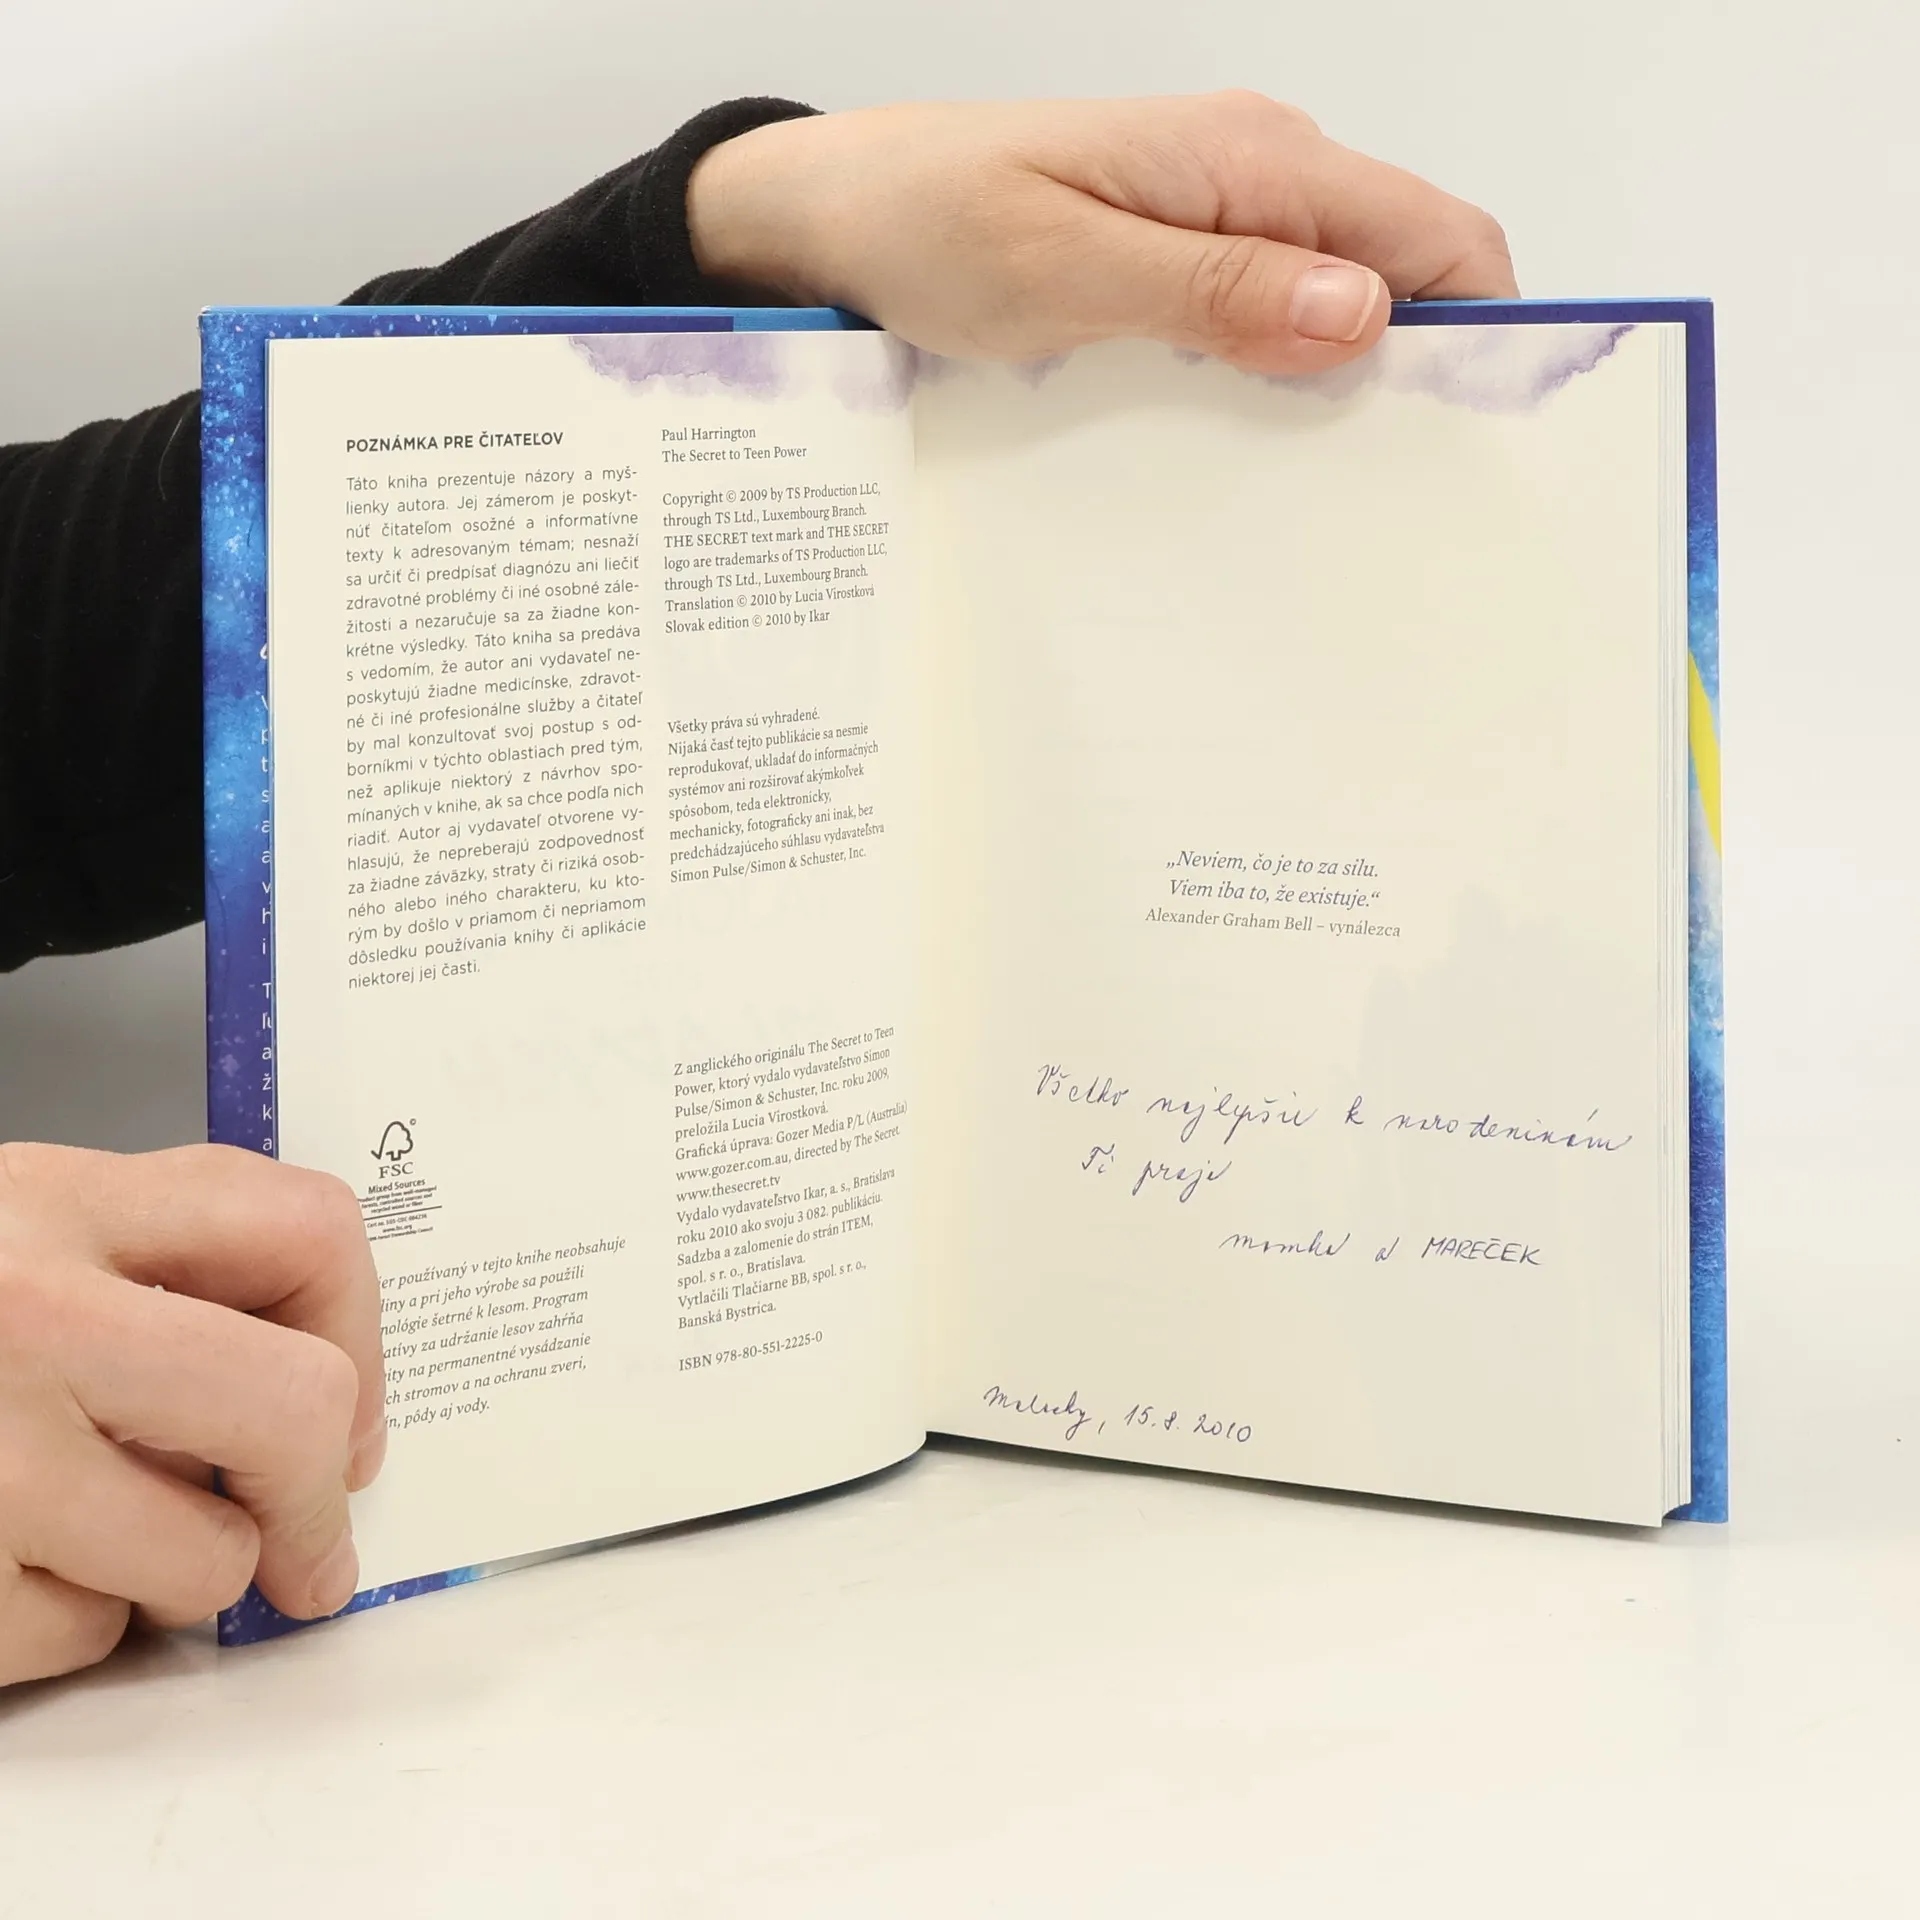 POZNÁMKA PRE ČITATEĽOV
Táto kniha prezentuje názory a myš-
lienky autora. Jej zámerom je poskyt-
núť čitateľom osožné a informatívne
texty k adresovaným témam; nesnaží
sa určiť či predpísať diagnózu ani liečiť
zdravotné problémy či iné osobné zále-
žitosti a nezaručuje sa za žiadne kon-
krétne výsledky. Táto kniha sa predáva
s vedomím, že autor ani vydavateľ ne-
poskytujú žiadne medicínske, zdravot-
né či iné profesionálne služby a čitateľ
by mal konzultovať svoj postup s od-
borníkmi v týchto oblastiach pred tým,
než aplikuje niektorý z návrhov spo-
mínaných v knihe, ak sa chce podľa nich
riadiť. Autor aj vydavateľ otvorene vy-
hlasujú, že nepreberajú zodpovednosť
za žiadne záväzky, straty či riziká osob-
ného alebo iného charakteru, ku kto-
rým by došlo v priamom či nepriamom
dôsledku používania knihy či aplikácie
niektorej jej časti.
FSC
Mixed Sources
Product group from well-managed
forests, controlled sources and
recycled wood or fiber
www.fsc.org
ier používaný v tejto knihe neobsahuje
liny a pri jeho výrobe sa použili
nológie šetrné k lesom. Program
atívy za udržanie lesov zahŕňa
ity na permanentné vysádzanie
ch stromov a na ochranu zveri,
ín, pôdy aj vody.
Paul Harrington
The Secret to Teen Power
Copyright © 2009 by TS Production LLC,
through TS Ltd., Luxembourg Branch.
THE SECRET text mark and THE SECRET
logo are trademarks of TS Production LLC,
through TS Ltd., Luxembourg Branch.
Translation © 2010 by Lucia Virostková
Slovak edition © 2010 by Ikar
Všetky práva sú vyhradené.
Nijaká časť tejto publikácie sa nesmie
reprodukovať, ukladať do informačných
systémov ani rozširovať akýmkoľvek
spôsobom, teda elektronicky,
mechanicky, fotograficky ani inak, bez
predchádzajúceho súhlasu vydavateľstva
Simon Pulse/Simon & Schuster, Inc.
Z anglického originálu The Secret to Teen
Power, ktorý vydalo vydavateľstvo Simon
Pulse/Simon & Schuster, Inc. roku 2009,
preložila Lucia Virostková.
Grafická úprava: Gozer Media P/L (Australia)
www.gozer.com.au, directed by The Secret
www.thesecret.tv
Vydalo vydavateľstvo Ikar, a. s., Bratislava
roku 2010 ako svoju 3 082. publikáciu.
Sadzba a zalomenie do strán ITEM,
spol. s r. o., Bratislava.
Vytlačili Tlačiarne BB, spol. s r. o.,
Banská Bystrica.
ISBN 978-80-551-2225-0
„Neviem, čo je to za silu.
Viem iba to, že existuje.“
Alexander Graham Bell – vynálezca
Všetko najlepšie k narodeninám
Ti praje
mamka a MAREČEK
Malacky, 15.8.2010